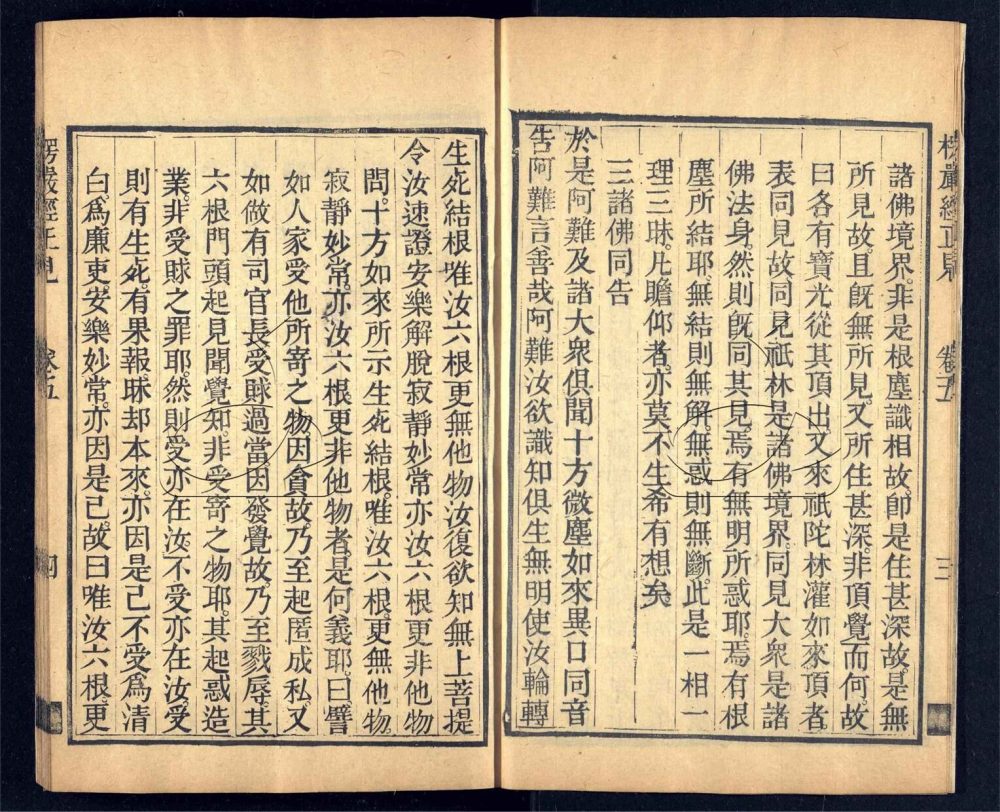 楞嚴經正見
卷五
三
諸佛境界。非是根塵識相故。卽是住甚深故。是無
所見故。且旣無所見。又所住甚深。非頂覺而何。故
曰各有寶光從其頂出。又來祇陀林灌如來頂者
表同見故。同見祇林是諸佛境界。同見大衆是諸
佛法身。然則旣同其見。焉有無明所惑耶。焉有根
塵所結耶。無結則無解。無惑則無斷。此是一相一
理三昧。凡瞻仰者。亦莫不生希有想矣
三諸佛同告
於是阿難及諸大衆俱聞十方微塵如來異口同音
告阿難言善哉阿難汝欲識知俱生無明使汝輪轉
生死結根唯汝六根更無他物汝復欲知無上菩提
令汝速證安樂解脫寂靜妙常亦汝六根更非他物
問。十方如來所示生死結根。唯汝六根更無他物。
寂靜妙常。亦汝六根。更非他物者。是何義耶。曰譬
如人家受他所寄之物。因貪故。乃至起匿成私。又
如做有司官長。受賕過當。因發覺故。乃至戮辱。其
六根門頭起見聞覺知。非受寄之物耶。其起惑造
業。非受賕之罪耶。然則受亦在汝。不受亦在汝。受
則有生死。有果報昧却本來。亦因是已不受爲清
白。爲廉吏。安樂妙常。亦因是已。故曰唯汝六根。更
楞嚴經正見
卷五
四